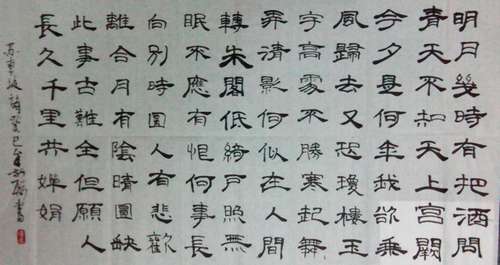 明月幾時有把酒問
青天不知天上宮闕
今夕是何年我欲乘
風歸去又恐瓊樓玉
宇高處不勝寒起舞
弄清影何似在人間
轉朱閣低綺戶照無
眠不應有恨何事長
向別時圓人有悲歡
離合月有陰晴圓缺
此事古難全但願人
長久千里共嬋娟
苏東坡詞癸巳書